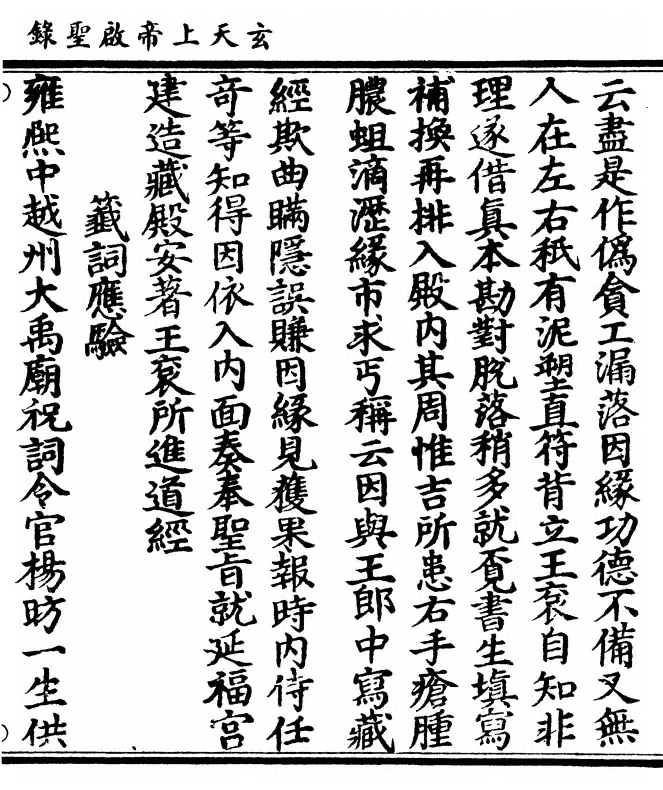 玄天上帝啟聖錄
云盡是作僞貪工漏落因緣功德不備又無
人在左右秖有泥塑直符背立王衮自知非
理遂借真本勘對脫落稍多就覓書生填寫
補換再排入殿內其周惟吉所患右手瘡腫
膿蛆滴瀝緣市求丐稱云因與王郎中寫藏
經欺曲瞞隱誤賺因緣見獲果報時內侍任
竒等知得因依入內面奏奉聖旨就延福宮
建造藏殿安著王衮所進道經
籤詞應驗
雍熙中越州大禹廟祝詞令官楊昉一生供